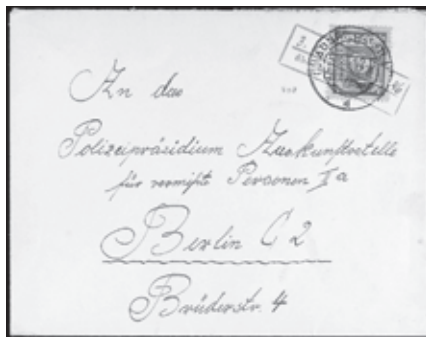 An das
Polizeipräsidium Auskunftsstelle
für vermißte Personen Ia
Berlin C 2
Brüderstr. 4